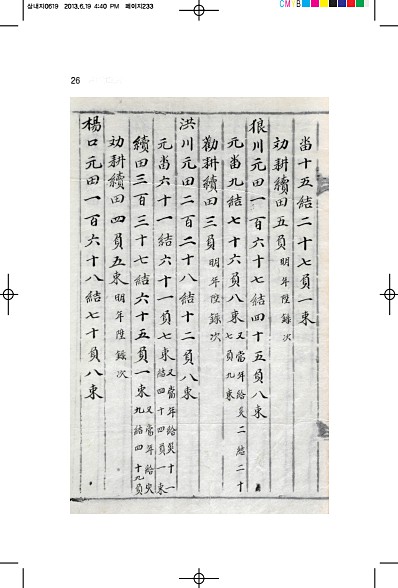 삼내지0619 2013.6.19 4:40 PM 페이지233
CMYB
26
畓十五結二十七負一束
劝耕續田五負 明年陞錄次
狼川元田一百六十七結四十五負八束
元畓九結七十六負八束 又當年給災二結二十七負九束
勸耕續田三負 明年陞錄次
洪川元田二百二十八結十二負八束
元畓六十一結六十一負七束 又當年給災十一結四十四負一束
續田三百三十七結六十五負一束 又當年給災九結四十九負
劝耕續田四負五束 明年陞錄次
楊口元田一百六十八結七十負八束